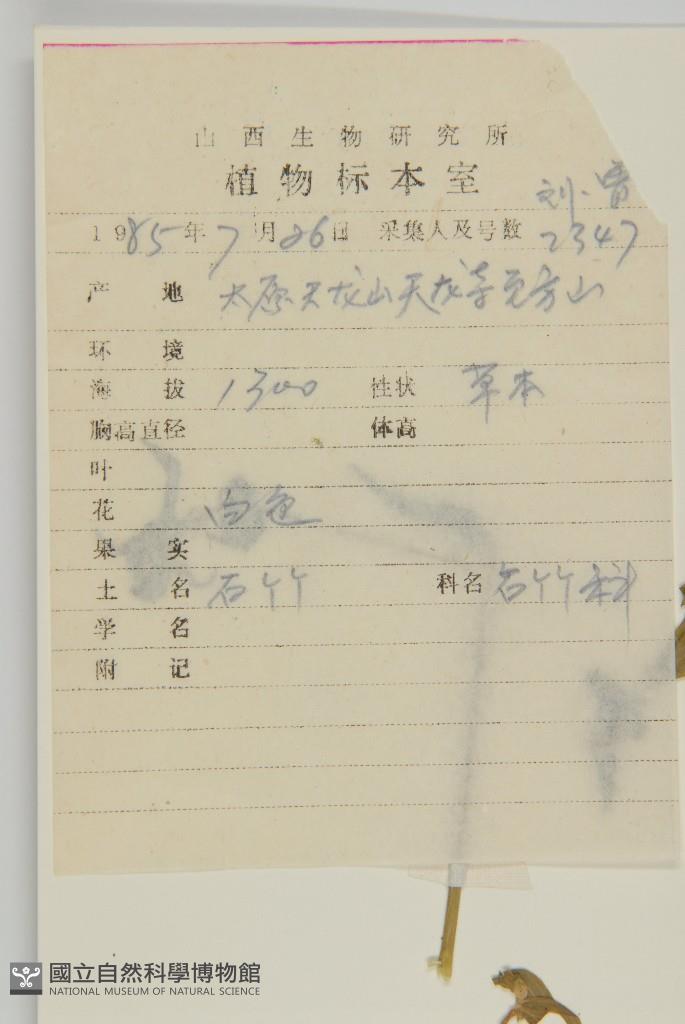 山西生物研究所
植物标本室
1985年7月26日 采集人及号数 刘、 2347
产地 太原天龙山天龙寺 方山
环境
海拔 1300 性状 草本
胸高直径 体高
叶
花 白色
果实
土名 石竹 科名 石竹科
学名
附记
國立自然科學博物館
NATIONAL MUSEUM OF NATURAL SCIENCE